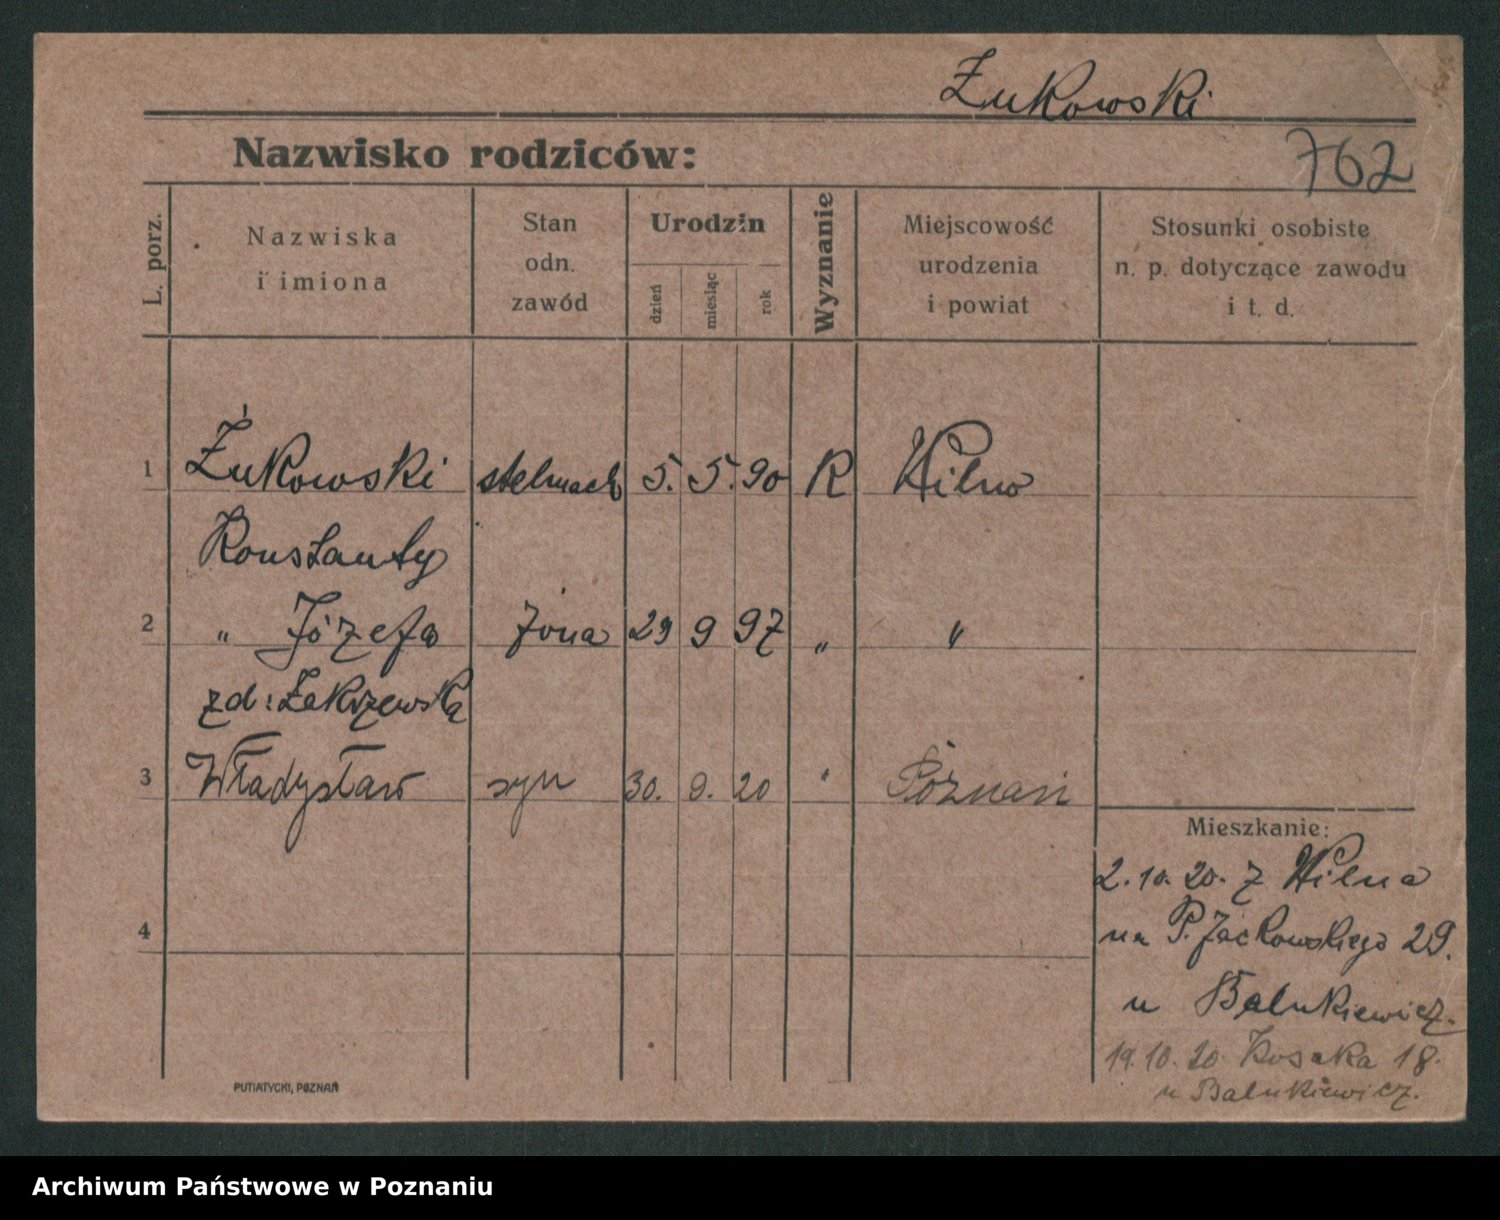 Żukowski
Nazwisko rodziców:
762
L. porz.
Nazwiska
i imiona
Stan
odn.
zawód
Urodzin
dzień
miesiąc
rok
Wyznanie
Miejscowość
urodzenia
i powiat
Stosunki osobiste
n. p. dotyczące zawodu
i t. d.
1 Żukowski stelmach 5. 5. 90 R Wilno
Konstanty
2 „ Józefa żona 29 9 97 „ „
zd: Zakrzewska
3 Władysław syn 30. 9. 20 " Poznań
Mieszkanie:
2. 10. 20. z Wilna
4
na P. Jackowskiego 29.
u Balukiewicz.
19. 10. 20 Kosaka 18.
u Balukiewicz.
PUTIATYCKI, POZNAŃ
Archiwum Państwowe w Poznaniu